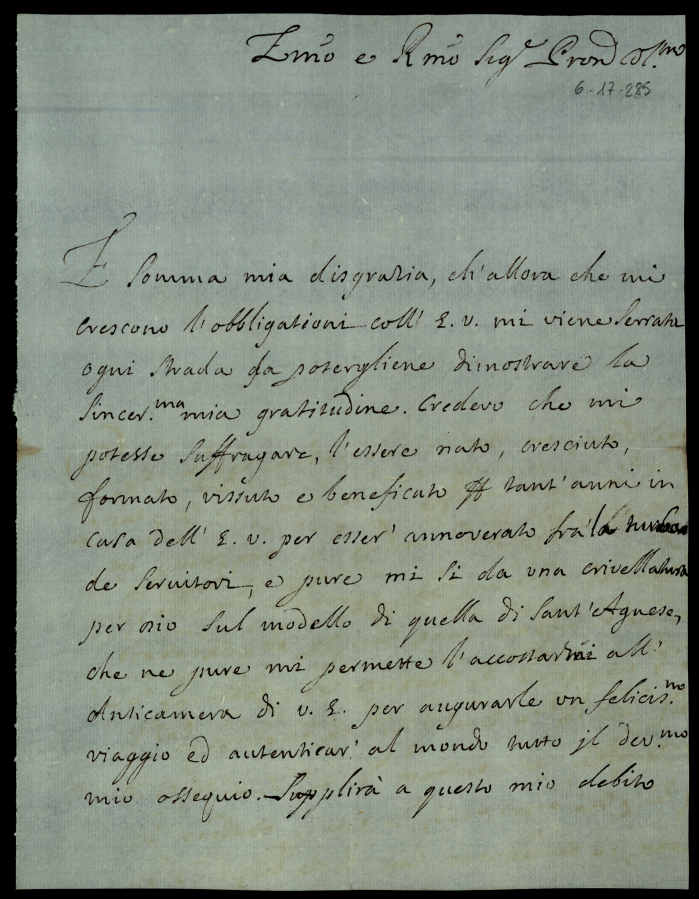 Emo e Rmo Sig.r Pron Col.mo
6-17-285
E Somma mia disgrazia, ch'allora che mi
crescono l'obbligationi coll' E. v. mi viene serrata
ogni strada da potergliene dimostrare la
sincer.ma mia gratitudine. Credevo che mi
potesse suffragare, l'essere nato, cresciuto,
formato, vissuto e beneficato tant'anni in
casa dell' E. v. per esser' annoverato frà la turba
de servitori, e pure mi si da una crivellatura
per sul modello di quella di Sant'Agnese,
che ne pure mi permette l'accostarmi all'
Anticamera di v. E. per augurarle un felicis.mo
viaggio ed autenticar' al mondo tutto jl dev.mo
mio ossequio. Supplirà a questo mio debito